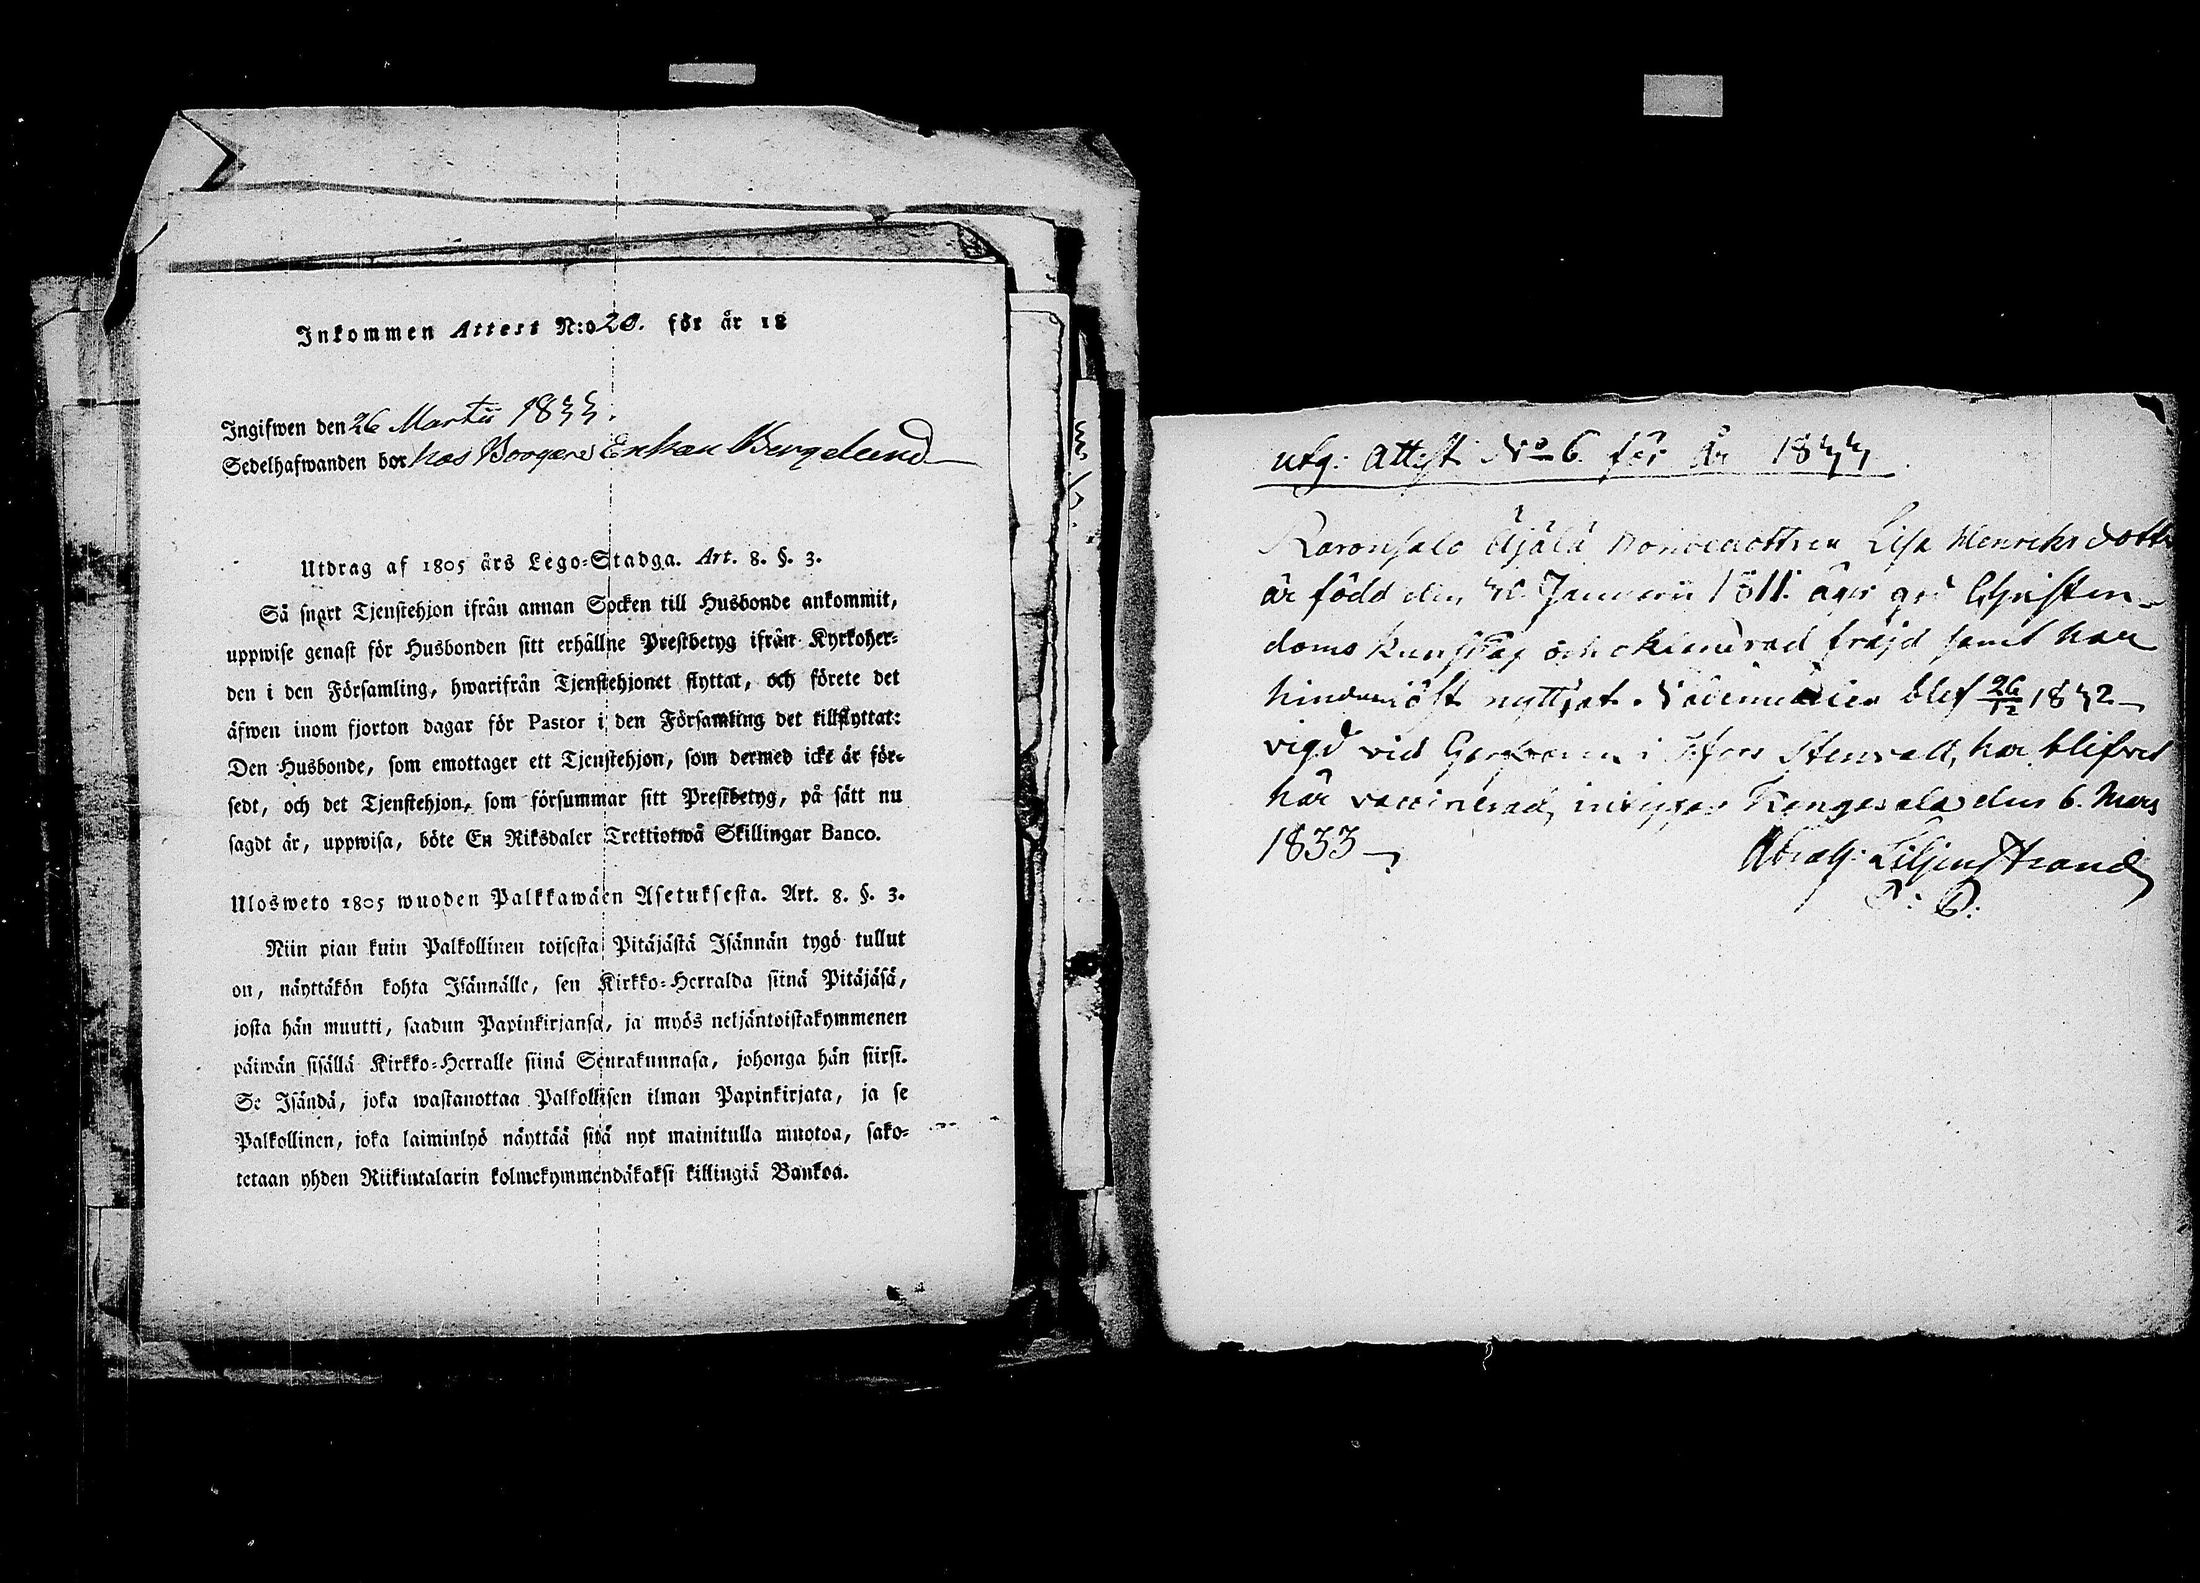 Inkommen Attest N:o 20. för år 18
Ingifwen den 26 Martii 1833.
Sedelhafwanden bor hos Borgare Enkan Bergelund
Utdrag af 1805 års Lego-Stadga. Art. 8. §. 3.
Så snart Tjenstehjon ifrån annan Socken till Husbonde ankommit,
uppwise genast för Husbonden sitt erhållne Prestbetyg ifrån Kyrkoher-
den i den Församling, hwarifrån Tjenstehjonet flyttat, och förete det
äfwen inom fjorton dagar för Pastor i den Församling det tillflyttat:
Den Husbonde, som emottager ett Tjenstehjon, som dermed icke är för-
sedt, och det Tjenstehjon, som försummar sitt Prestbetyg, på sätt nu
sagdt är, uppwisa, böte En Riksdaler Trettiotwå Skillingar Banco.
Ulosweto 1805 wuoden Palkkawäen Asetuksesta. Art. 8. §. 3.
Niin pian kuin Palkollinen toisesta Pitäjästä Isännän tygö tullut
on, näyttäkön kohta Isännälle, sen Kirkko-Herralda siinä Pitäjäsä,
josta hän muutti, saadun Papinkirjansa, ja myös neljäntoistakymmenen
päiwän sisällä Kirkko-Herralle siinä Seurakunnasa, johonga hän siirsi.
Se Isändä, joka wastanottaa Palkollisen ilman Papinkirjata, ja se
Palkollinen, joka laiminlyö näyttää sitä nyt mainitulla muotoa, sako-
tetaan yhden Riikintalarin kolmekymmendäkaksi killingiä Bankoa.
utg: Attest No 6. för År 1833
bondedottren Lisa Henriksdotter
är född den 30. Januarii 1811. äger god Christen-
doms kunskap och oklanderad fräjd samt har
hinderlöst nyttjat Nådemedlen blef 26/12 1832
vigd vid i H:fors Stenvall, har blifvit
här vaccinerad, intygar Kangasala den 6. Mars
1833
Abrah: Liljenstrand